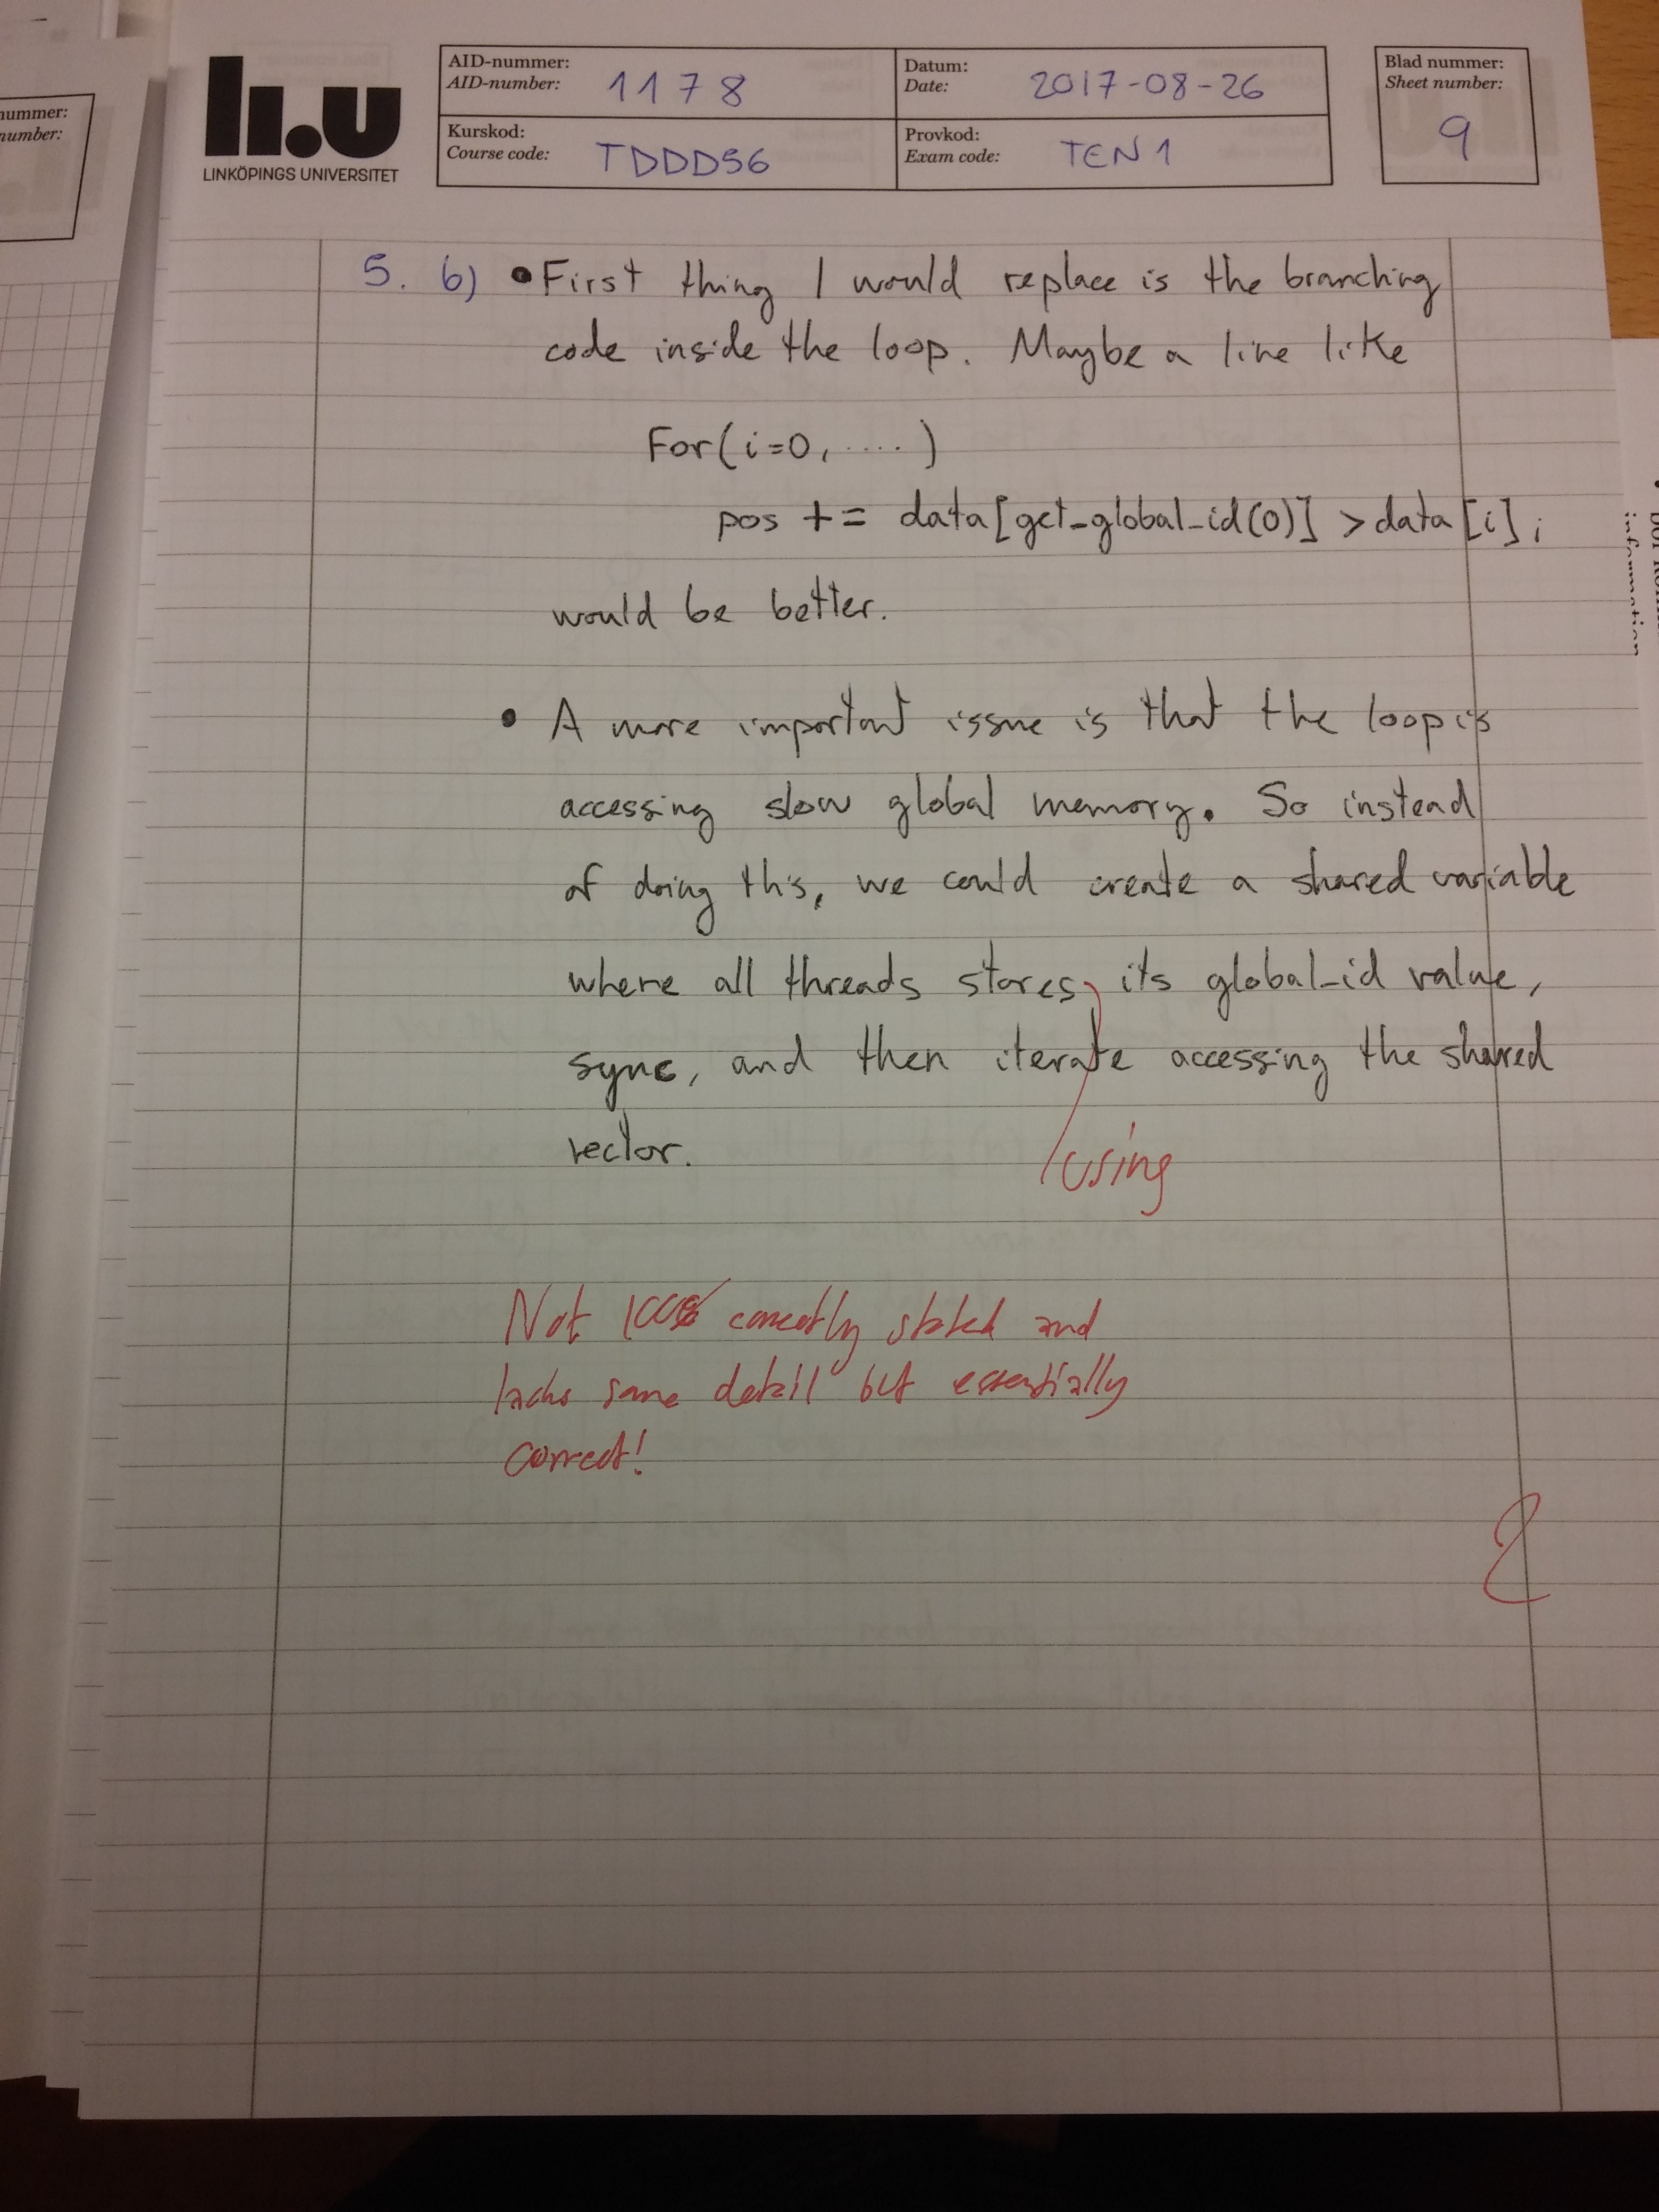 nummer:
number:
li.u
LINKÖPINGS UNIVERSITET
AID-nummer:
AID-number: 1178
Datum:
Date: 2017-08-26
Kurskod:
Course code: TDDD56
Provkod:
Exam code: TEN1
Blad nummer:
Sheet number:
9
5. b) • First thing I would replace is the branching
code inside the loop. Maybe a line like
For(i=0, ....)
pos += data[get_global_id(0)] > data[i];
would be better.
• A more important issue is that the loop is
accessing slow global memory. So instead
of doing this, we could create a shared variable
where all threads stores its global_id value,
sync, and then iterate accessing the shared
vector.
using
Not 100% correctly stated and
lacks some detail but essentially
correct!
2
information